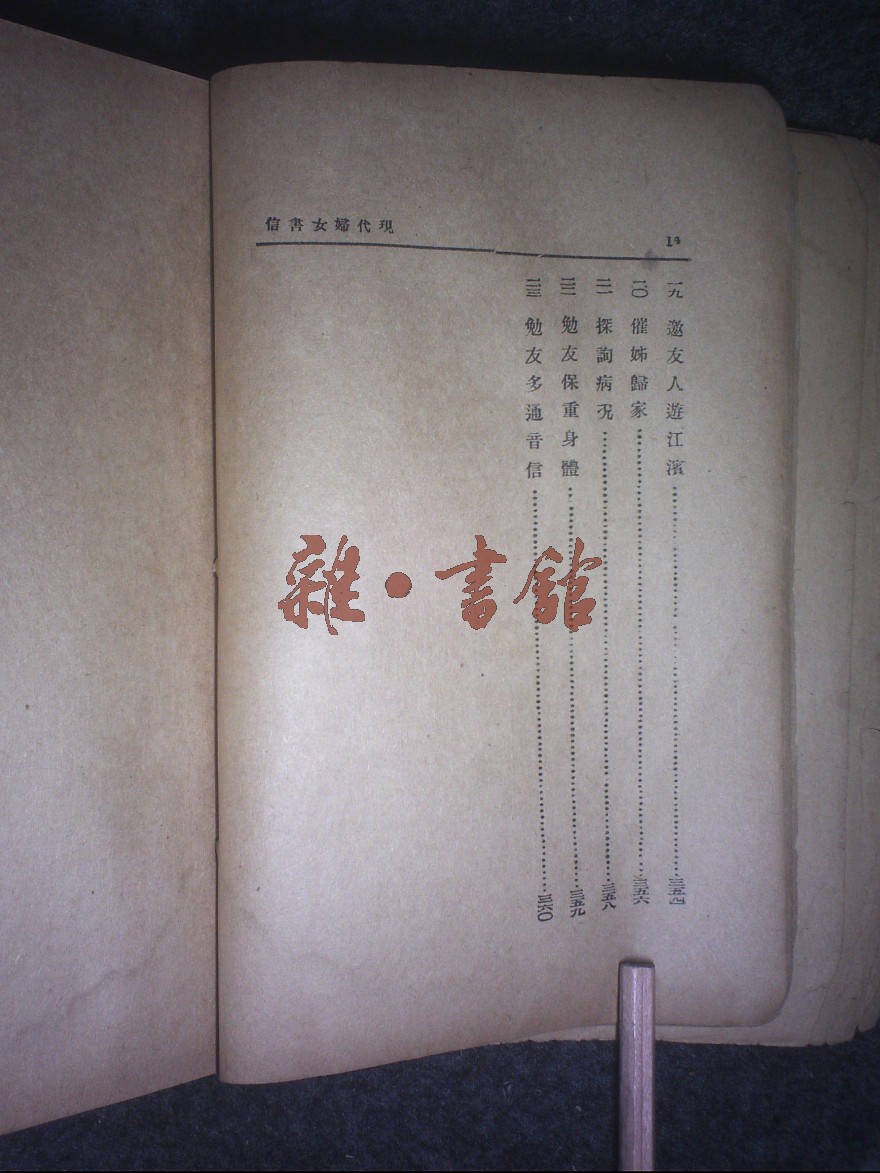 現代婦女書信
14
一九 邀友人遊江濱……三五四
二〇 催姊歸家……三五六
二一 探詢病況……三五八
二二 勉友保重身體……三五九
二三 勉友多通音信……三六〇
雜·書館